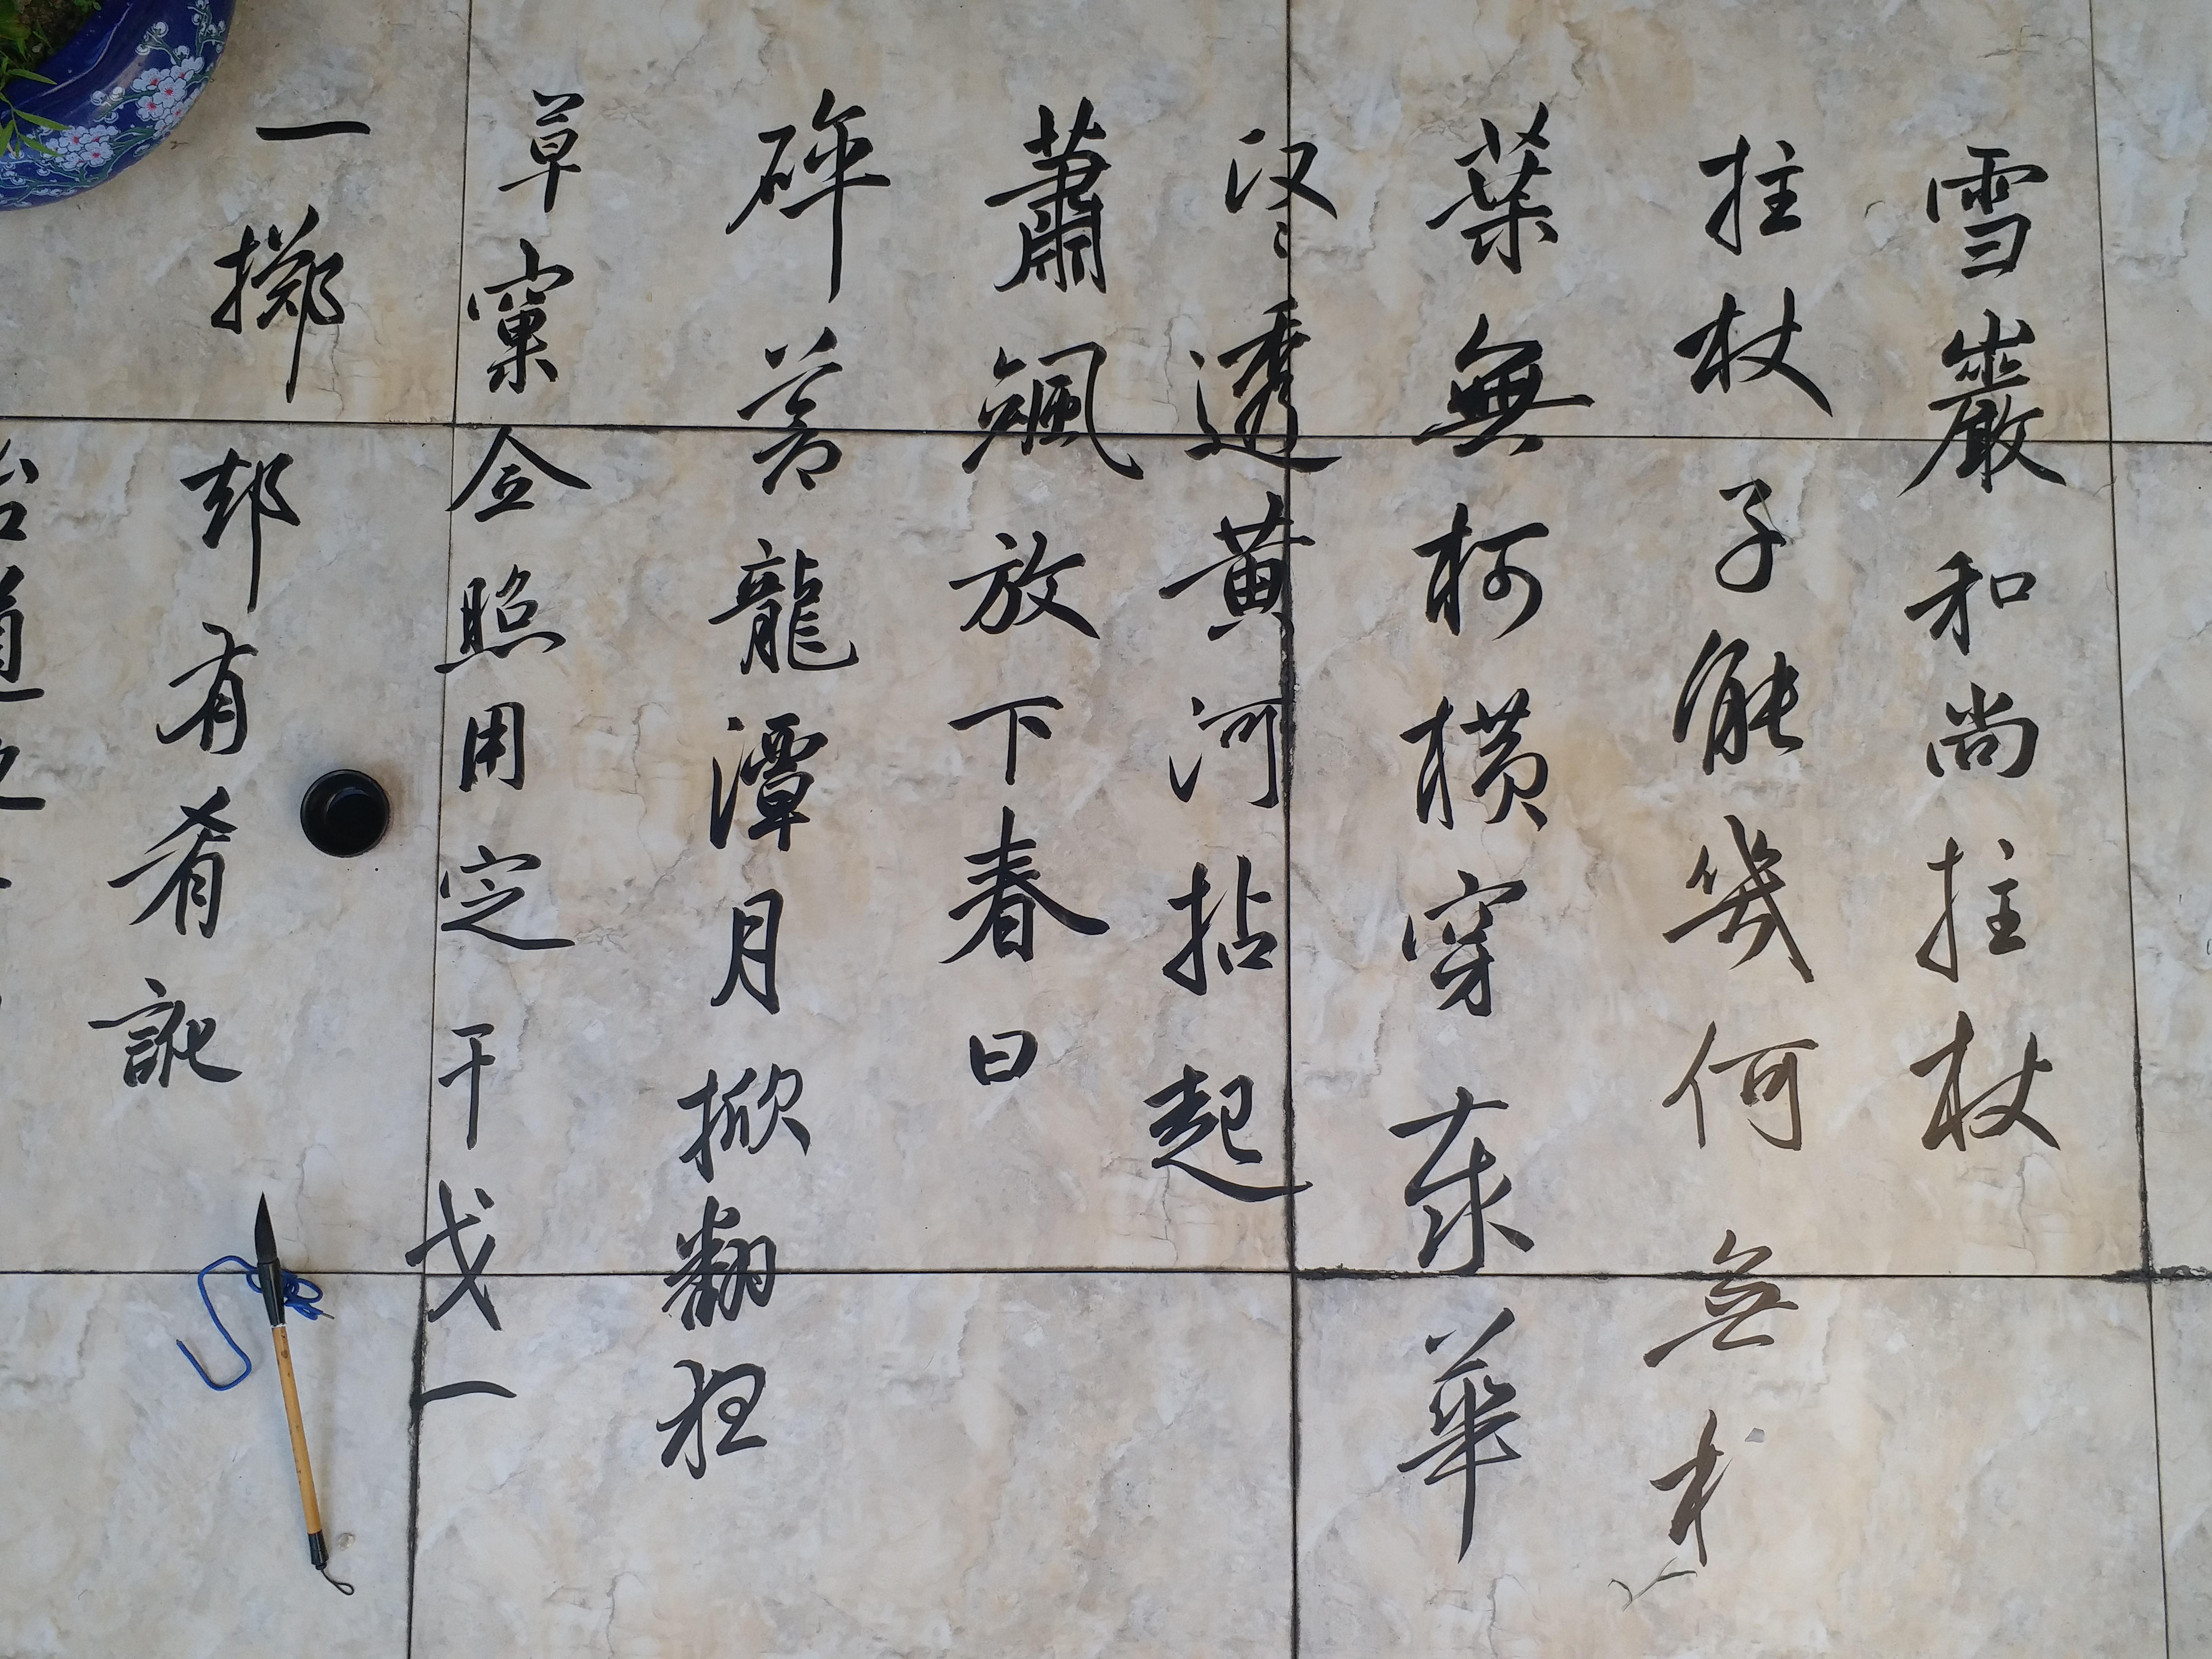 雪巖和尚拄杖
拄杖子能幾何無
葉無柯橫穿泰華
透黃河拈起
蕭颯放下春日
碎蒼龍潭月掀翻狂
草窠全照用定干戈一
一擲却有肴訛